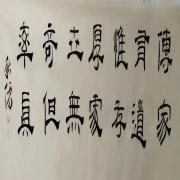 傳家
有道
惟存
厚處
世無
奇但
率真